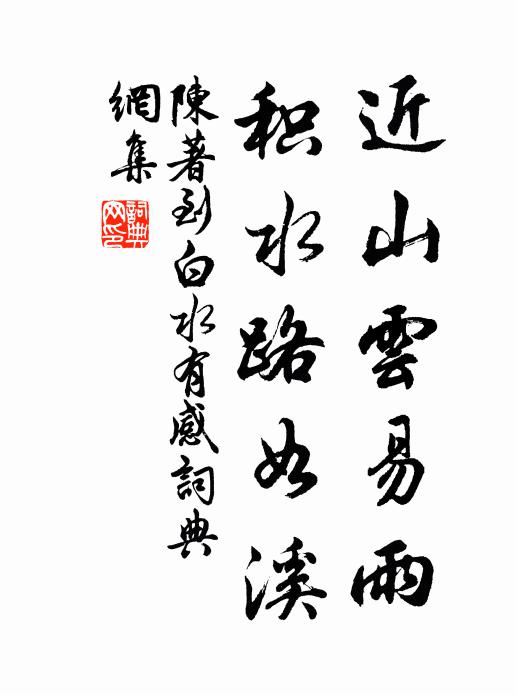 近山雲易雨
积水路如溪
陳著到白水有感詞典
網集
詞典
网印